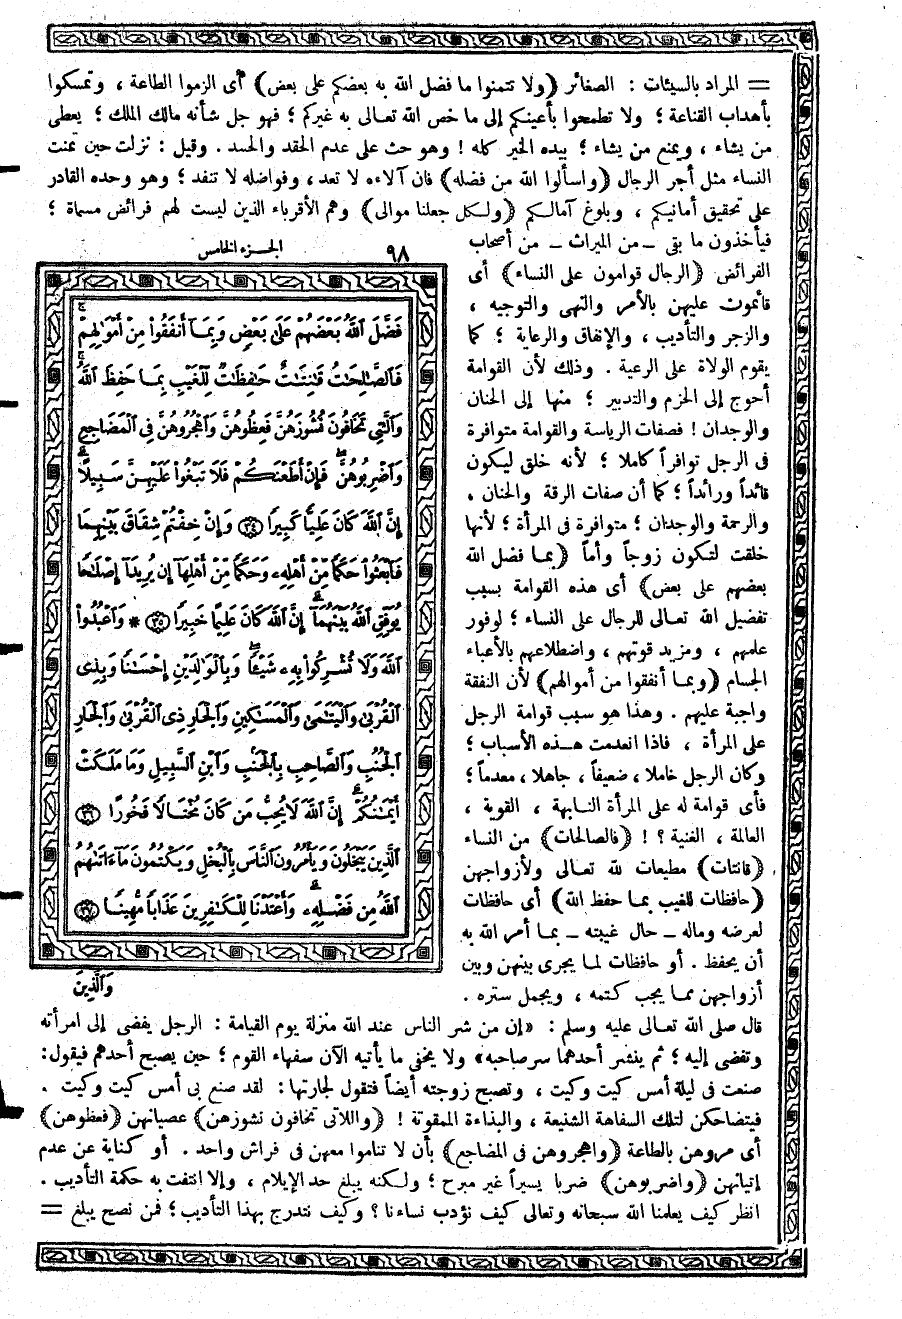 = المراد بالسيئات : الصغائر (ولا تتمنوا ما فضل الله به بعضكم على بعض) أى الزموا الطاعة ، وتمسكوا
بأهداب القناعة ؛ ولا تطمحوا بأعينكم إلى ما خص الله تعالى به غيركم ؛ فهو جل شأنه مالك الملك ؛ يعطى
من يشاء ، ويمنع من يشاء ؛ بيده الخير كله ! وهو حث على عدم الحقد والحسد . وقيل : نزلت حين تمنت
النساء مثل أجر الرجال (واسألوا الله من فضله) فان آلاءه لا تعد ، وفواضله لا تنفد ؛ وهو وحده القادر
على تحقيق أمانيكم ، وبلوغ آمالكم (ولكل جعلنا موالى) وهم الأقرباء الذين ليست لهم فرائض مسماة ؛
فيأخذون ما بقى – من الميراث – من أصحاب
الفرائض (الرجال قوامون على النساء) أى
قائمون عليهن بالأمر والنهى والتوجيه ،
والزجر والتأديب ، والإنفاق والرعاية ؛ كما
يقوم الولاة على الرعية . وذلك لأن القوامة
أحوج إلى الحزم والتدبير ؛ منها إلى الحنان
والوجدان ! فصفات الرياسة والقوامة متوافرة
فى الرجل توافراً كاملا ؛ لأنه خلق ليكون
قائداً ورائداً ؛ كما أن صفات الرقة والحنان ،
والرحمة والوجدان ؛ متوافرة فى المرأة ؛ لأنها
خلقت لتكون زوجاً وأماً (بما فضل الله
بعضهم على بعض) أى هذه القوامة بسبب
تفضيل الله تعالى للرجال على النساء ؛ لوفور
علمهم ، ومزيد قوتهم ، واضطلاعهم بالأعباء
الجسام (وبما أنفقوا من أموالهم) لأن النفقة
واجبة عليهم . وهذا هو سبب قوامة الرجل
على المرأة ، فاذا انعدمت هذه الأسباب ؛
وكان الرجل خاملا ، ضعيفاً ، جاهلا ، معدماً ؛
فأى قوامة له على المرأة النابهة ، القوية ،
العالمة ، الغنية ؟ ! (فالصالحات) من النساء
(قانتات) مطيعات لله تعالى ولأزواجهن
(حافظات للغيب بما حفظ الله) أى حافظات
لعرضه وماله – حال غيبته – بما أمر الله به
أن يحفظ . أو حافظات لما يجرى بينهن وبين
أزواجهن مما يجب كتمه ، ويجمل ستره .
٩٨ الجزء الخامس
فَضَّلَ اللَّهُ بَعْضَهُمْ عَلَىٰ بَعْضٍ وَبِمَآ أَنفَقُوا۟ مِنْ أَمْوَٰلِهِمْ ۚ
فَٱلصَّٰلِحَٰتُ قَٰنِتَٰتٌ حَٰفِظَٰتٌ لِّلْغَيْبِ بِمَا حَفِظَ ٱللَّهُ ۚ
وَٱلَّٰتِى تَخَافُونَ نُشُوزَهُنَّ فَعِظُوهُنَّ وَٱهْجُرُوهُنَّ فِى ٱلْمَضَاجِعِ
وَٱضْرِبُوهُنَّ ۖ فَإِنْ أَطَعْنَكُمْ فَلَا تَبْغُوا۟ عَلَيْهِنَّ سَبِيلًا ۗ
إِنَّ ٱللَّهَ كَانَ عَلِيًّا كَبِيرًا ٣٤ وَإِنْ خِفْتُمْ شِقَاقَ بَيْنِهِمَا
فَٱبْعَثُوا۟ حَكَمًا مِّنْ أَهْلِهِۦ وَحَكَمًا مِّنْ أَهْلِهَآ إِن يُرِيدَآ إِصْلَٰحًا
يُوَفِّقِ ٱللَّهُ بَيْنَهُمَآ ۗ إِنَّ ٱللَّهَ كَانَ عَلِيمًا خَبِيرًا ٣٥ * وَٱعْبُدُوا۟
ٱللَّهَ وَلَا تُشْرِكُوا۟ بِهِۦ شَيْـًٔا ۖ وَبِٱلْوَٰلِدَيْنِ إِحْسَٰنًا وَبِذِى
ٱلْقُرْبَىٰ وَٱلْيَتَٰمَىٰ وَٱلْمَسَٰكِينِ وَٱلْجَارِ ذِى ٱلْقُرْبَىٰ وَٱلْجَارِ
ٱلْجُنُبِ وَٱلصَّاحِبِ بِٱلْجَنۢبِ وَٱبْنِ ٱلسَّبِيلِ وَمَا مَلَكَتْ
أَيْمَٰنُكُمْ ۗ إِنَّ ٱللَّهَ لَا يُحِبُّ مَن كَانَ مُخْتَالًا فَخُورًا ٣٦
ٱلَّذِينَ يَبْخَلُونَ وَيَأْمُرُونَ ٱلنَّاسَ بِٱلْبُخْلِ وَيَكْتُمُونَ مَآ ءَاتَىٰهُمُ
ٱللَّهُ مِن فَضْلِهِۦ ۗ وَأَعْتَدْنَا لِلْكَٰفِرِينَ عَذَابًا مُّهِينًا ٣٧
وَٱلَّذِينَ
قال صلى الله تعالى عليه وسلم : «إن من شر الناس عند الله منزلة يوم القيامة : الرجل يفضى إلى امرأته
وتفضى إليه ؛ ثم ينشر أحدهما سر صاحبه» ولا يخفى ما يأتيه الآن سفهاء القوم ؛ حين يصبح أحدهم فيقول :
صنعت فى ليلة أمس كيت وكيت ، وتصبح زوجته أيضاً فتقول لجارتها : لقد صنع بى أمس كيت وكيت .
فيتضاحكن لتلك السفاهة الشنيعة ، والبذاءة الممقوتة ! (واللاتى تخافون نشوزهن) عصيانهن (فعظوهن)
أى مروهن بالطاعة (واهجروهن فى المضاجع) بأن لا تناموا معهن فى فراش واحد . أو كناية عن عدم
إتيانهن (واضربوهن) ضربا يسيراً غير مبرح ؛ ولكنه يبلغ حد الإيلام ، وإلا انتفت به حكمة التأديب .
انظر كيف يعلمنا الله سبحانه وتعالى كيف نؤدب نساءنا ؟ وكيف نتدرج بهذا التأديب ؛ فمن نصح يبلغ =